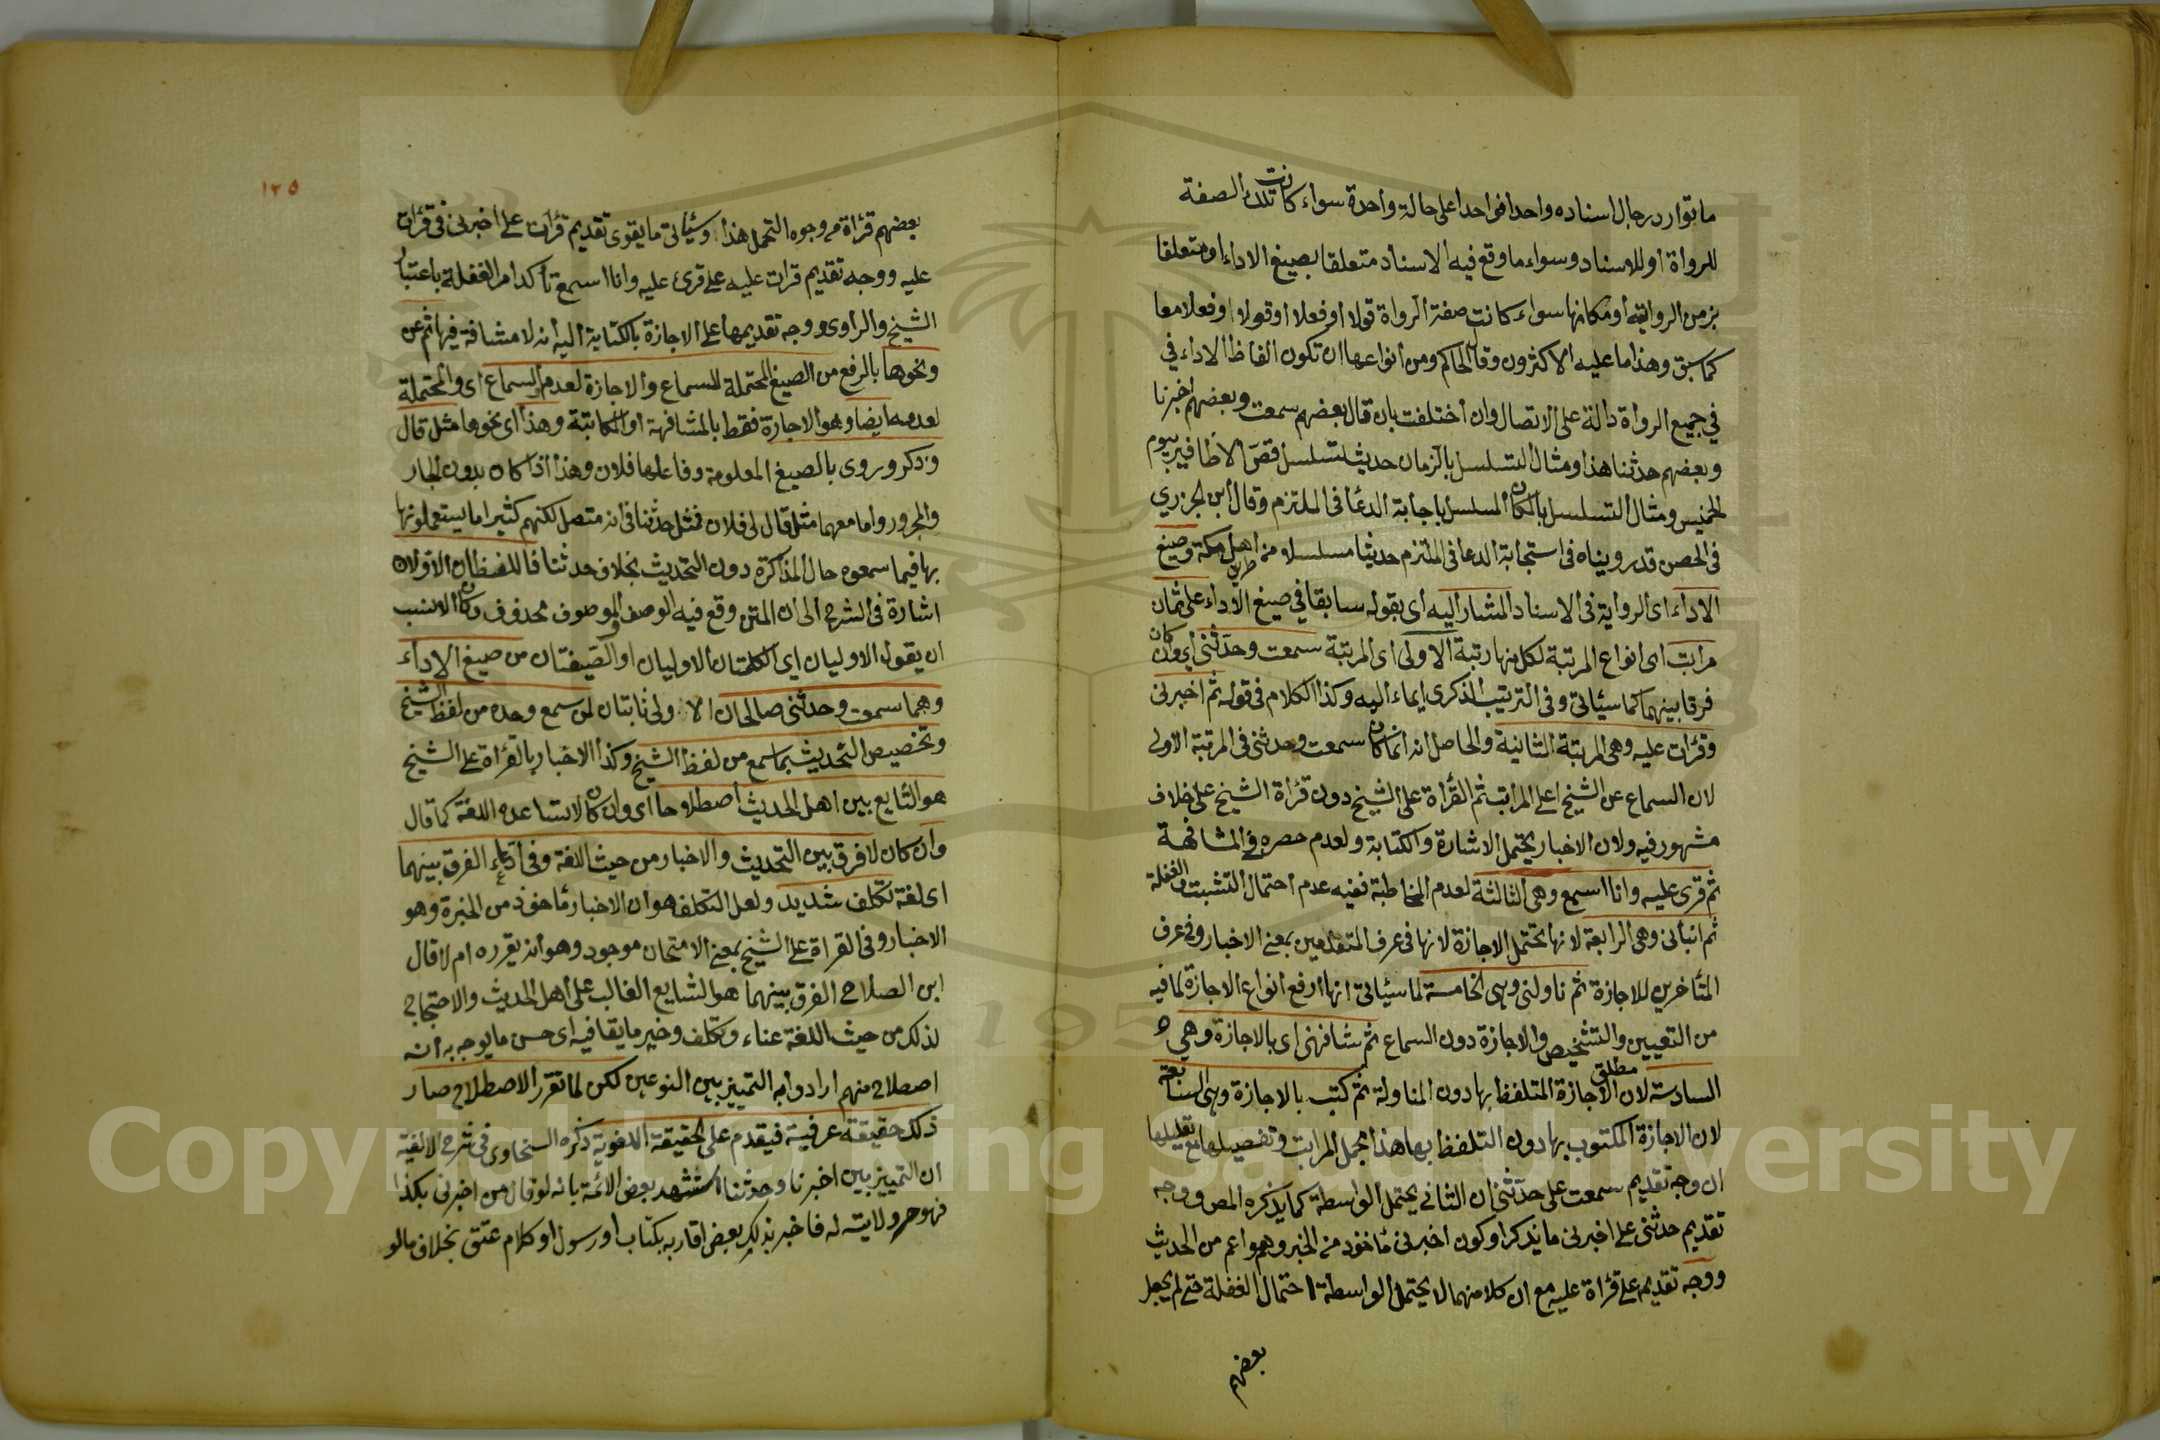 ما توارد رجال اسناده واحدا فواحدا على حالة واحدة سواء كانت تلك الصفة
للرواة او للاسناد وسواء ما وقع فيه الاسناد متعلقا بصيغ الاداء او متعلقا
بزمن الرواية او مكانها سواء كانت صفة الرواة قولا او فعلا او قولا وفعلا معا
كما سبق وهذا ما عليه الاكثرون وقال الحاكم ومن انواعها ان تكون الفاظ الاداء في
في جميع الرواة دالة على الاتصال وان اختلفت بان قال بعضهم سمعت وبعضهم اخبرنا
وبعضهم حدثنا هذا ومثال التسلسل بالزمان حديث تسلسل قص الاظافير بيوم
الخميس ومثال التسلسل بالمكان المسلسل باجابة الدعا في الملتزم وقال ابن الجزري
في الحصن قد روينا في استجابة الدعا في الملتزم حديثا مسلسلا من طريق اهل مكة وصيغ
الاداء اى الرواية في الاسناد المشار اليه اى بقوله سابقا في صيغ الاداء على ثمان
مراتب اى انواع المرتبة لكل منها رتبة الاولى اى المرتبة سمعت وحدثنى اى وان كان
فرقا بينهما كما سيئاتى وفى الترتيب الذكرى ايماء اليه وكذا الكلام فى قوله ثم اخبرنى
وقرئات عليه وهى المرتبة الثانية والحاصل انه انما كان سمعت وحدثنى فى المرتبة الاولى
لان السماع عن الشيخ اعلى المراتب ثم القرأة على الشيخ دون قرئاة الشيخ على خلاف
مشهور فيه ولان الاخبار يحتمل الاشارة والكتابة ولعدم حصره في المشافهة
ثم قرى عليه وانا اسمع وهى الثالثة لعدم المخاطبة ففيه عدم احتمال التشبت والغفلة
ثم انبانى وهى الرابعة لانها تحتمل الاجازة لانها فى عرف المتقدمين بمعنى الاخبار وفى عرف
المتأخرين للاجازة ثم ناولنى وهى الخامسة لما سيئاتى انها ارفع انواع الاجازة لما فيه
من التعيين والتشخيص والاجازة دون السماع ثم شافهنى اى بالاجازة وهي
السادسة لان مطلق الاجازة المتلفظ بها دون المناولة ثم كتب بالاجازة وهى السابعة
لان الاجازة المكتوب بها دون التلفظ بها هذا مجمل المراتب وتفصيلها مع تعليلها
ان وجه تقديم سمعت على حدثنى ان الثانى يحتمل الواسطة كما يذكره المص ووجه
تقديم حدثنى على اخبرنى ما يذكر او كون اخبرنى مأخوذ من الخبر وهو اعم من الحديث
ووجه تقديم على قرئاة عليه مع ان كلا منهما لا يحتمل الواسطة احتمال الغفلة حتى لم يجعل
بعضهم
١٢٥
بعضهم قرئاة من وجوه التحمل هذا وسيئاتى ما يقوى تقديم قرئات على اخبرنى فى قرئات
عليه ووجه تقديم قرات عليه على قرئ عليه وانا اسمع تأكد امر الغفلة باعتبار
الشيخ والراوى ووجه تقديمها على الاجازة بالكتابة اليه انه لا مشافهة فيها ثم عن
ونحوها بالرفع من الصيغ المحتملة للسماع والاجازة لعدم السماع اى والمحتملة
لعدمه ايضا وهو الاجازة فقط بالمشافهة او المكاتبة وهذا اى نحوها مثل قال
وذكر وروى بالصيغ المعلومة وفاعلها فلان وهذا اذا كان بدون الجار
والمجرور واما معهما مثل قال لى فلان فمثل حدثنا فى انه متصل لكنهم كثيرا ما يستعملونها
بها فيما سمعوه حال المذاكرة دون التحديث بخلاف حدثنا فاللفظان الاولان
اشارة فى الشرح الى ان المتن وقع فيه الوصف والموصوف محذوف وكان الانسب
ان يقول الاوليان اى الكلمتان الاوليان او الصيغتان من صيغ الاداء
وهما سمعت وحدثنى صالحان الا ولى ثابتان لمن سمع وحده من لفظ الشيخ
وتخصيص التحديث بما سمع من لفظ الشيخ وكذا الاخبار بالقرأة على الشيخ
هو الشايع بين اهل الحديث اصطلاحا اى وان كان لا تساعده اللغة كما قال
وان كان لا فرق بين التحديث والاخبار من حيث اللغة وفى ادعاء الفرق بينهما
اى لغة تكلف شديد ولعل التكلف هو ان الاخبار مأخوذ من الخبرة وهو
الاختبار وفى القراة على الشيخ بمعنى الامتحان موجود وهو انه يقرره ام لا قال
ابن الصلاح الفرق بينهما هو الشايع الغالب على اهل الحديث والاحتجاج
لذلك من حيث اللغة عناء وتكلف وخير ما يقا فيه اى حسن ما يوجه به انه
اصطلاح منهم ارادوا به التمييز بين النوعين لكن لما تقرر الاصطلاح صار
ذلك حقيقة عرفية فيقدم على الحقيقة اللغوية ذكره السخاوى فى شرح الالفية
ان التمييز بين اخبرنا وحدثنا استشهد بعض الائمة بانه لو قال من اخبرنى بكذا
فهو حر ولا نية له فاخبر بذلك بعض اقاربه بكتاب او رسول او كلام عتق بخلاف ما لو
Copyright © King Saud University
195